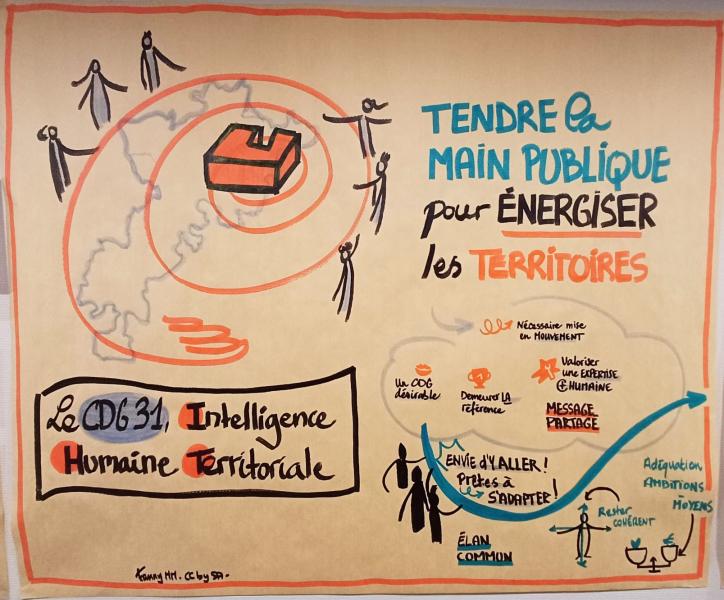 TENDRE la
MAIN PUBLIQUE
pour ÉNERGISER
les TERRITOIRES
Nécessaire mise
en MOUVEMENT
Un CDG
désirable
Demeurer LA
référence
Valoriser
une EXPERTISE
+ HUMAINE
MESSAGE
PARTAGÉ
Le CDG31, Intelligence
Humaine Territoriale
ENVIE d'Y ALLER !
Prêtes à
S'ADAPTER !
ÉLAN
COMMUN
Rester
COHÉRENT
Adéquation
AMBITIONS
MOYENS
Fanny MM. CC by SA-